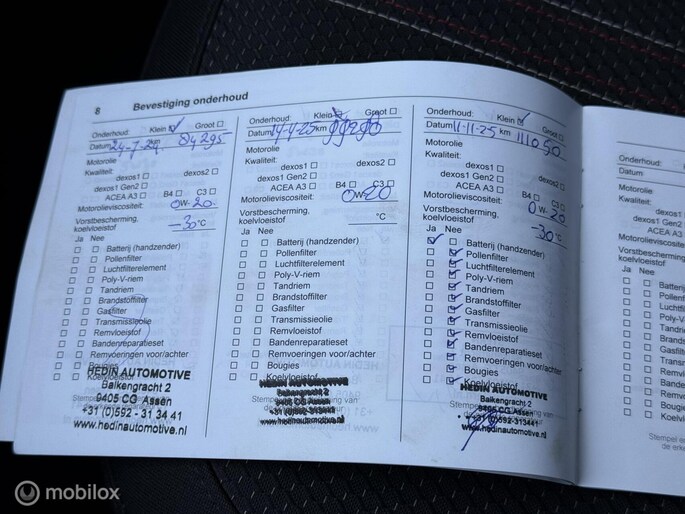 8 Bevestiging onderhoud
Onderhoud: Klein ☑ Groot ☐
Datum 24-7-24 km 84295
Motorolie
Kwaliteit:
dexos1 ☐ dexos2 ☐
dexos1 Gen2 ☐
ACEA A3 ☐ B4 ☐ C3 ☐
Motorolieviscositeit: 0W-20
Vorstbescherming,
koelvloeistof -30 °C
Ja Nee
☐ ☐ Batterij (handzender)
☐ ☐ Pollenfilter
☐ ☐ Luchtfilterelement
☐ ☐ Poly-V-riem
☐ ☐ Tandriem
☐ ☐ Brandstoffilter
☐ ☐ Gasfilter
☐ ☐ Transmissieolie
☐ ☐ Remvloeistof
☐ ☐ Bandenreparatieset
☐ ☐ Remvoeringen voor/achter
☐ ☐ Bougies
☐ ☐ Koelvloeistof
HEDIN AUTOMOTIVE
Balkengracht 2
9405 CG Assen
+31 (0)592 - 31 34 41
www.hedinautomotive.nl
Onderhoud: Klein ☑ Groot ☐
Datum 14-4-25 km
Motorolie
Kwaliteit:
dexos1 ☐ dexos2 ☐
dexos1 Gen2 ☐
ACEA A3 ☐ B4 ☐ C3 ☐
Motorolieviscositeit: 0W-20
Vorstbescherming,
koelvloeistof °C
Ja Nee
☐ ☐ Batterij (handzender)
☐ ☐ Pollenfilter
☐ ☐ Luchtfilterelement
☐ ☐ Poly-V-riem
☐ ☐ Tandriem
☐ ☐ Brandstoffilter
☐ ☐ Gasfilter
☐ ☐ Transmissieolie
☐ ☐ Remvloeistof
☐ ☐ Bandenreparatieset
☐ ☐ Remvoeringen voor/achter
☐ ☐ Bougies
☐ ☐ Koelvloeistof
HEDIN AUTOMOTIVE
Balkengracht 2
9405 CG Assen
+31 (0)592-313441
www.hedinautomotive.nl
Onderhoud: Klein ☑ Groot ☐
Datum 11-11-25 km 111050
Motorolie
Kwaliteit:
dexos1 ☐ dexos2 ☐
dexos1 Gen2 ☐
ACEA A3 ☐ B4 ☐ C3 ☐
Motorolieviscositeit: 0W-20
Vorstbescherming,
koelvloeistof -30 °C
Ja Nee
☑ ☐ Batterij (handzender)
☐ ☑ Pollenfilter
☐ ☑ Luchtfilterelement
☐ ☑ Poly-V-riem
☐ ☑ Tandriem
☐ ☑ Brandstoffilter
☐ ☑ Gasfilter
☐ ☑ Transmissieolie
☐ ☑ Remvloeistof
☐ ☑ Bandenreparatieset
☐ ☑ Remvoeringen voor/achter
☐ ☑ Bougies
☐ ☑ Koelvloeistof
HEDIN AUTOMOTIVE
Balkengracht 2
9405 CG Assen
+31 (0)592-313441
www.hedinautomotive.nl
Onderhoud:
Datum
Motorolie
Kwaliteit:
dexos1
dexos1 Gen2
ACEA A3
Motorolieviscositeit
Vorstbescherming
koelvloeistof
Ja Nee
mobilox